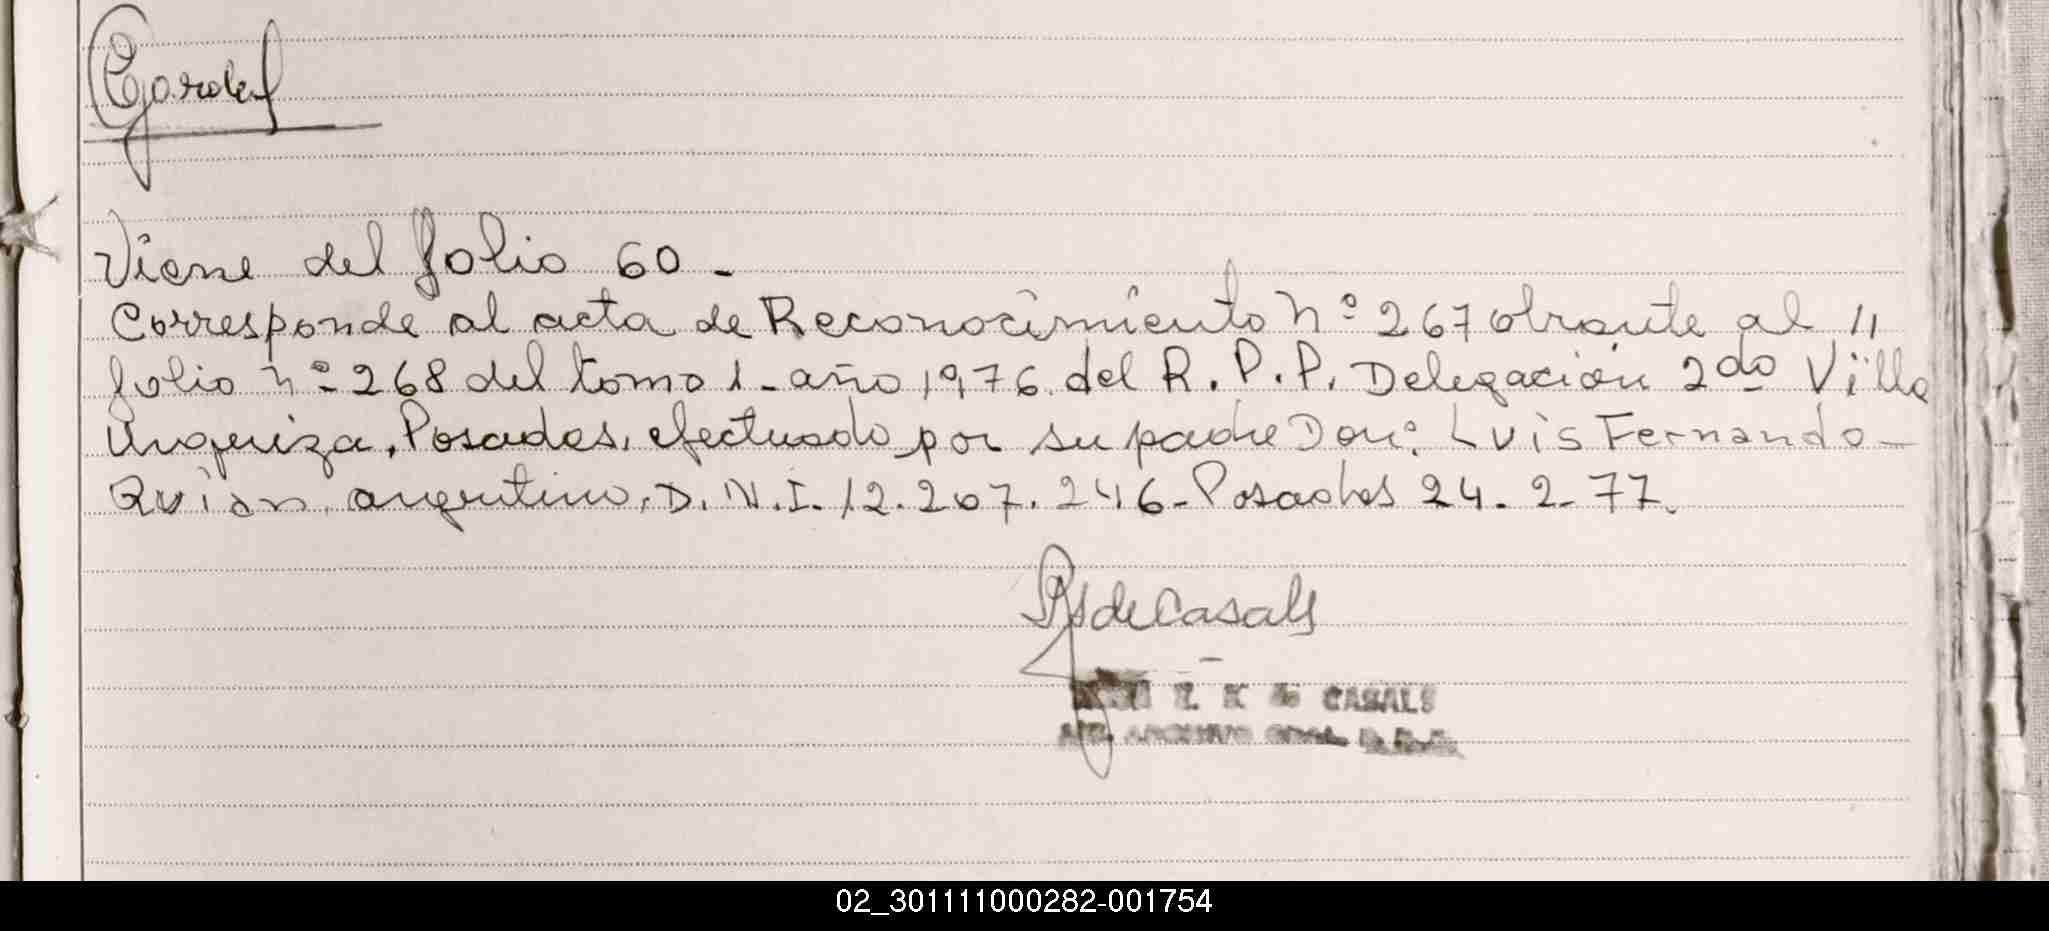 Gardel
Viene del folio 60 -
Corresponde al acta de Reconocimiento Nº 267 obrante al //
folio nº 268 del tomo 1 - año 1976 del R. P. P. Delegación 2da Villa
Urquiza, Posadas, efectuado por su padre Don: Luis Fernando -
Quian, argentino, D. N. I. 12.207.246 - Posadas 24-2-77.
de Casals
E. K de CASALS
ARCHIVO GRAL.
02_301111000282-001754